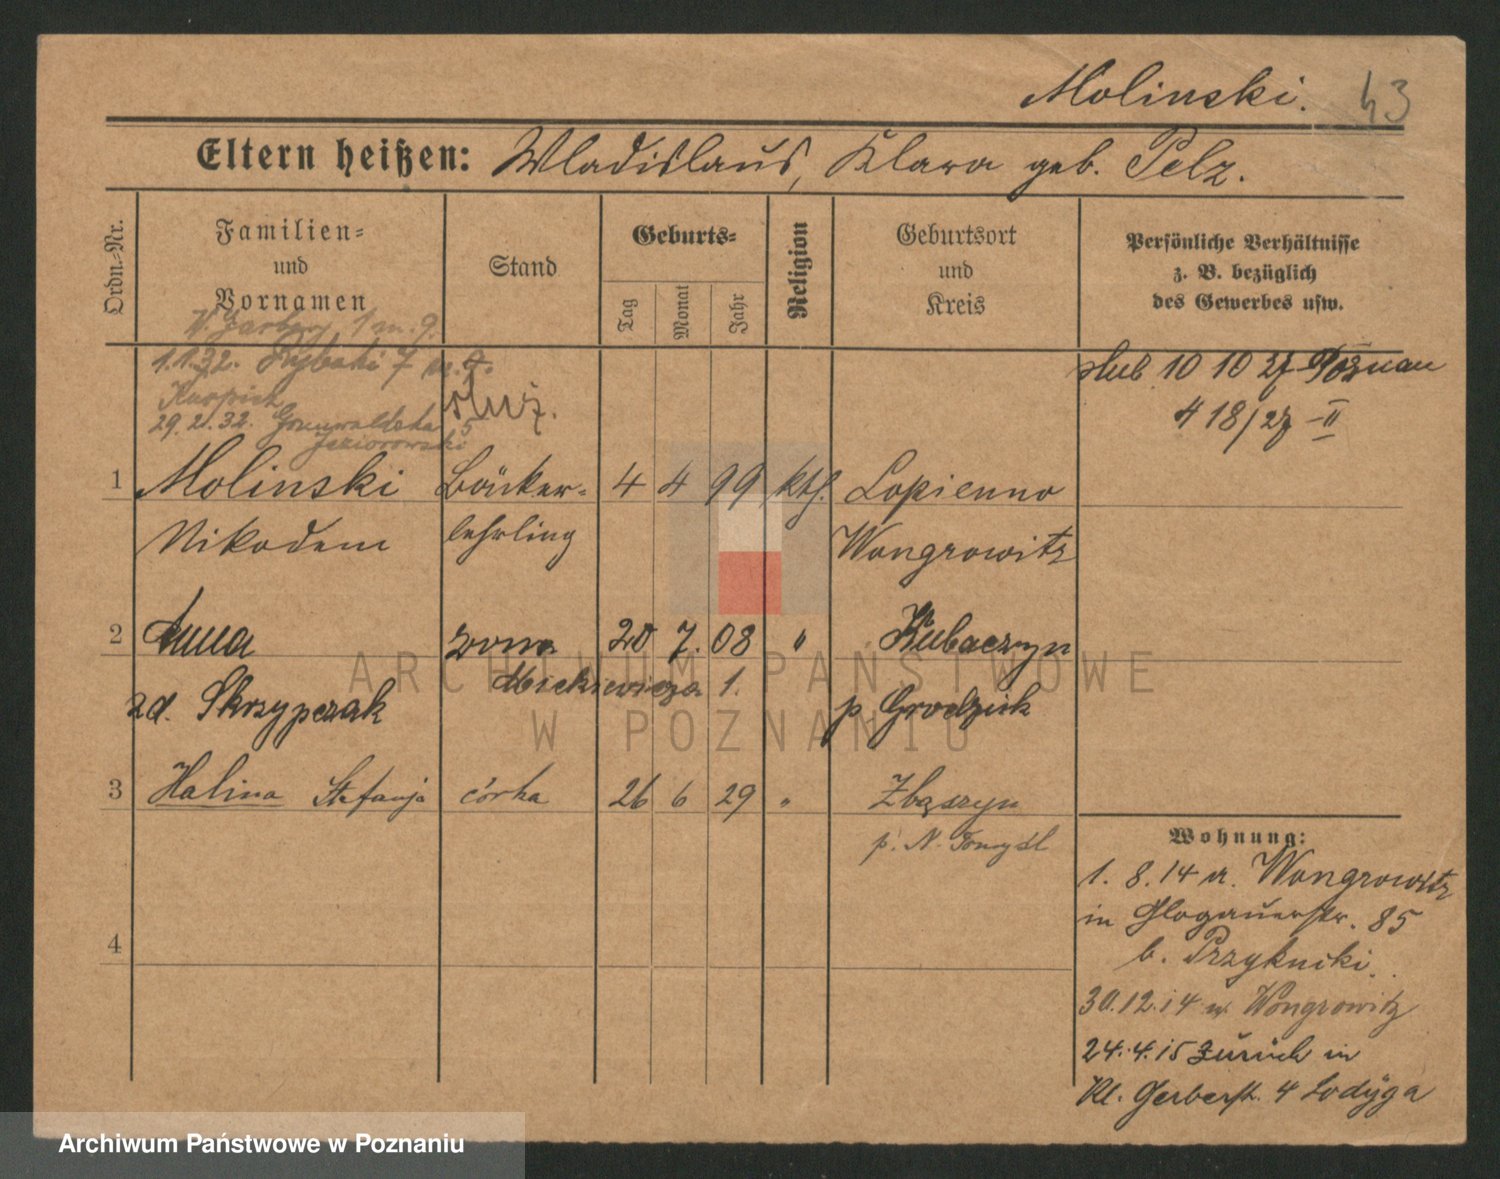 Molinski. 43
Eltern heißen: Wladislaus, Klara geb. Pelz.
Ordn.-Nr.
Familien-
und
Vornamen
Stand
Geburts-
Tag
Monat
Jahr
Religion
Geburtsort
und
Kreis
Persönliche Verhältnisse
z. B. bezüglich
des Gewerbes usw.
W. Garbary 1 m. 9.
1.1.32. Rybaki 7 m. 9.
29.2.32. Grunwaldzka 5
Jeziorowski
służ.
ślub 10 10 27 Poznań
418/27 II
1 Molinski Bäcker- 4 4 99 kth. Lopienno
Nikodem lehrling Wongrowitz
2 Anna żona 20 7. 08 " Kubaczyn
Mickiewicza 1.
zd. Skrzypczak p. Grodzisk
3 Halina Stefanja córka 26 6 29 " Zbąszyn
p. N. Tomyśl
4
Wohnung:
1. 8. 14 v. Wongrowitz
in Glogauerstr. 85
b. Przyknicki.
30.12.14 n. Wongrowitz
24.4.15 zurück in
Kl. Gerberstr. 4 Lodyga
ARCHIWUM PAŃSTWOWE
W POZNANIU
Archiwum Państwowe w Poznaniu